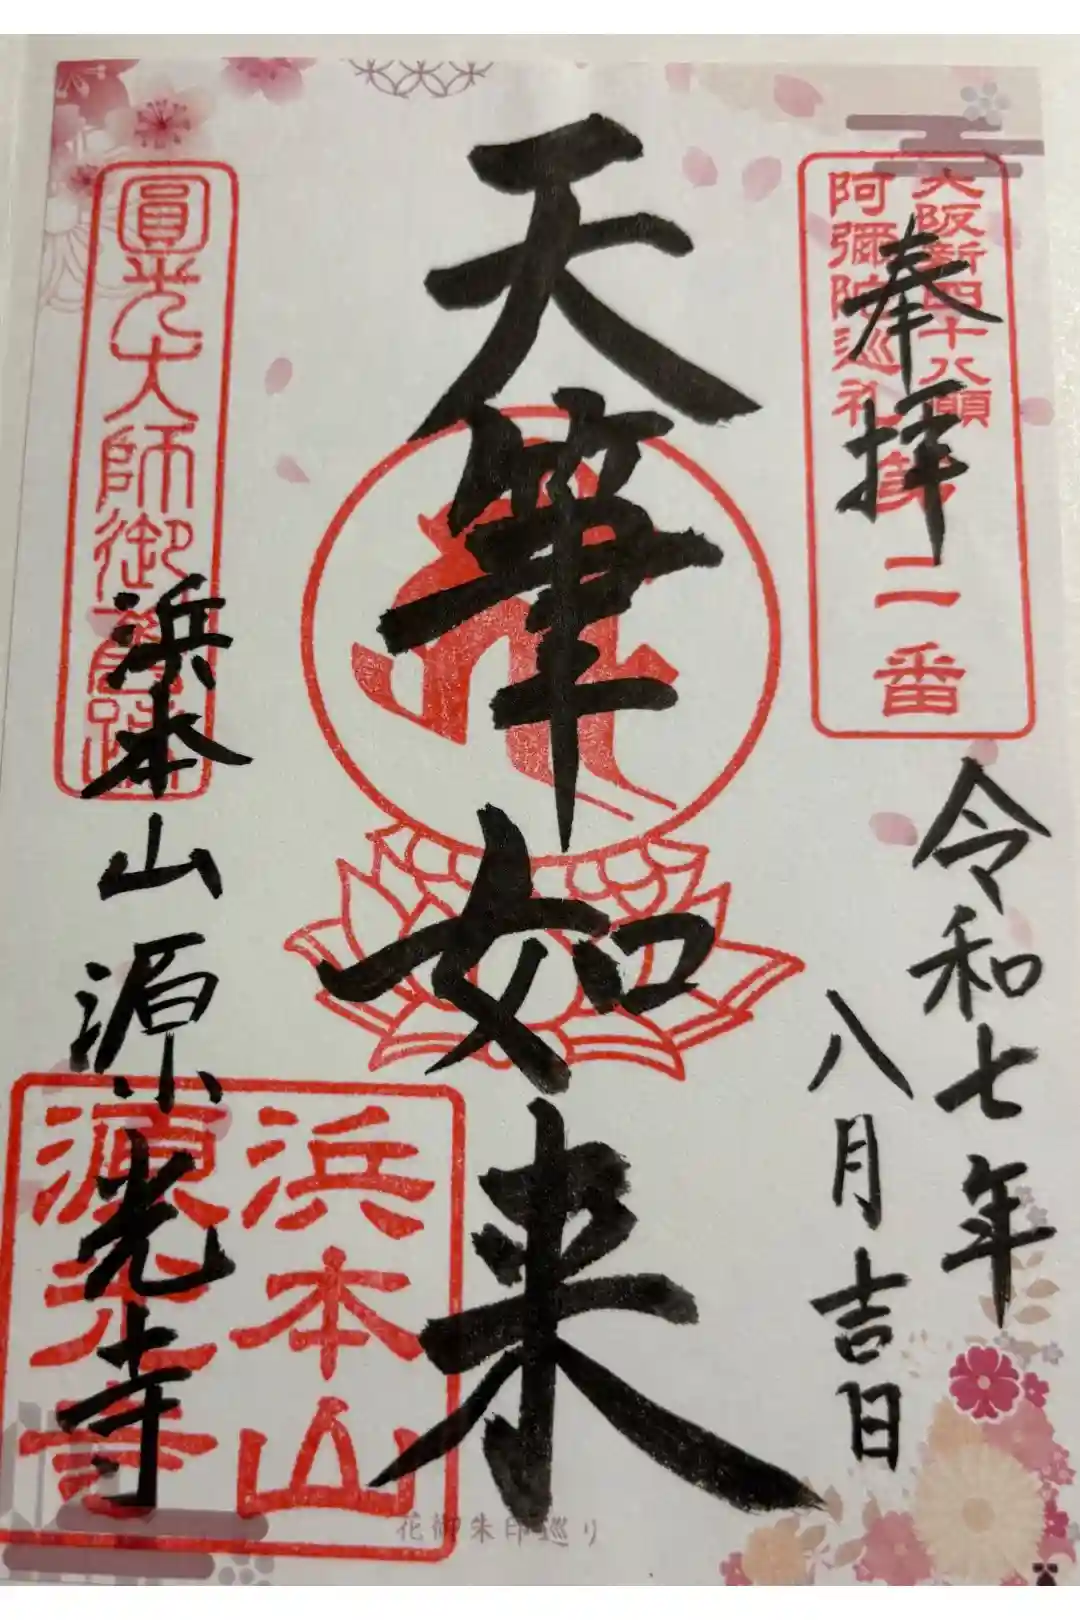 奉拝
大阪新四十八願
阿彌陀巡礼第二番
令和七年
八月吉日
天筆如来
圓光大師御舊跡
浜本山源光寺
浜本山
源光寺
花御朱印巡り